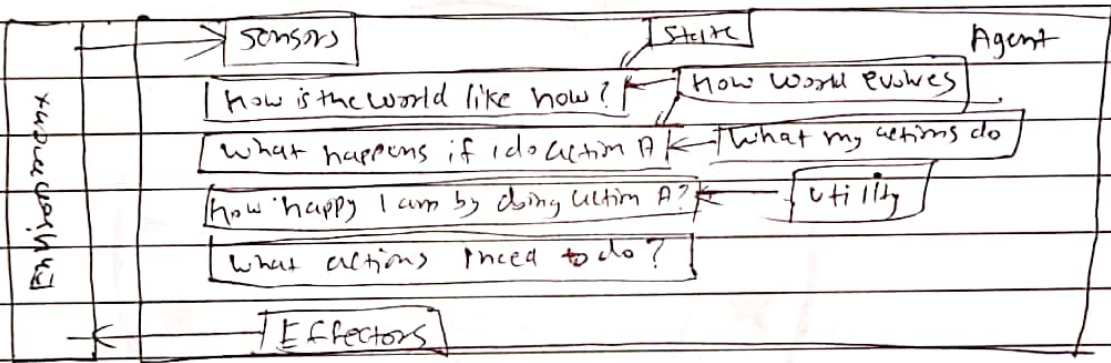 Sensors State Agent
How is the world like now? How world evolves
What happens if I do action A What my actions do
How happy I am by doing action A? Utility
What actions I need to do?
Effectors
Environment